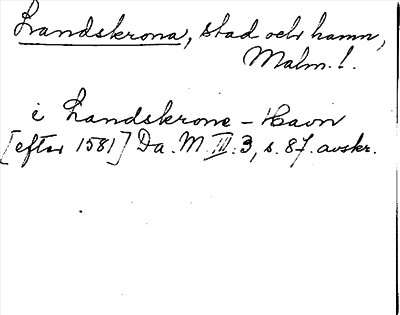 Landskrona, stad och hamn,
Malm. l.
i Landskrone - Havn
[efter 1581] Da. M. III: 3, s. 87. avskr.